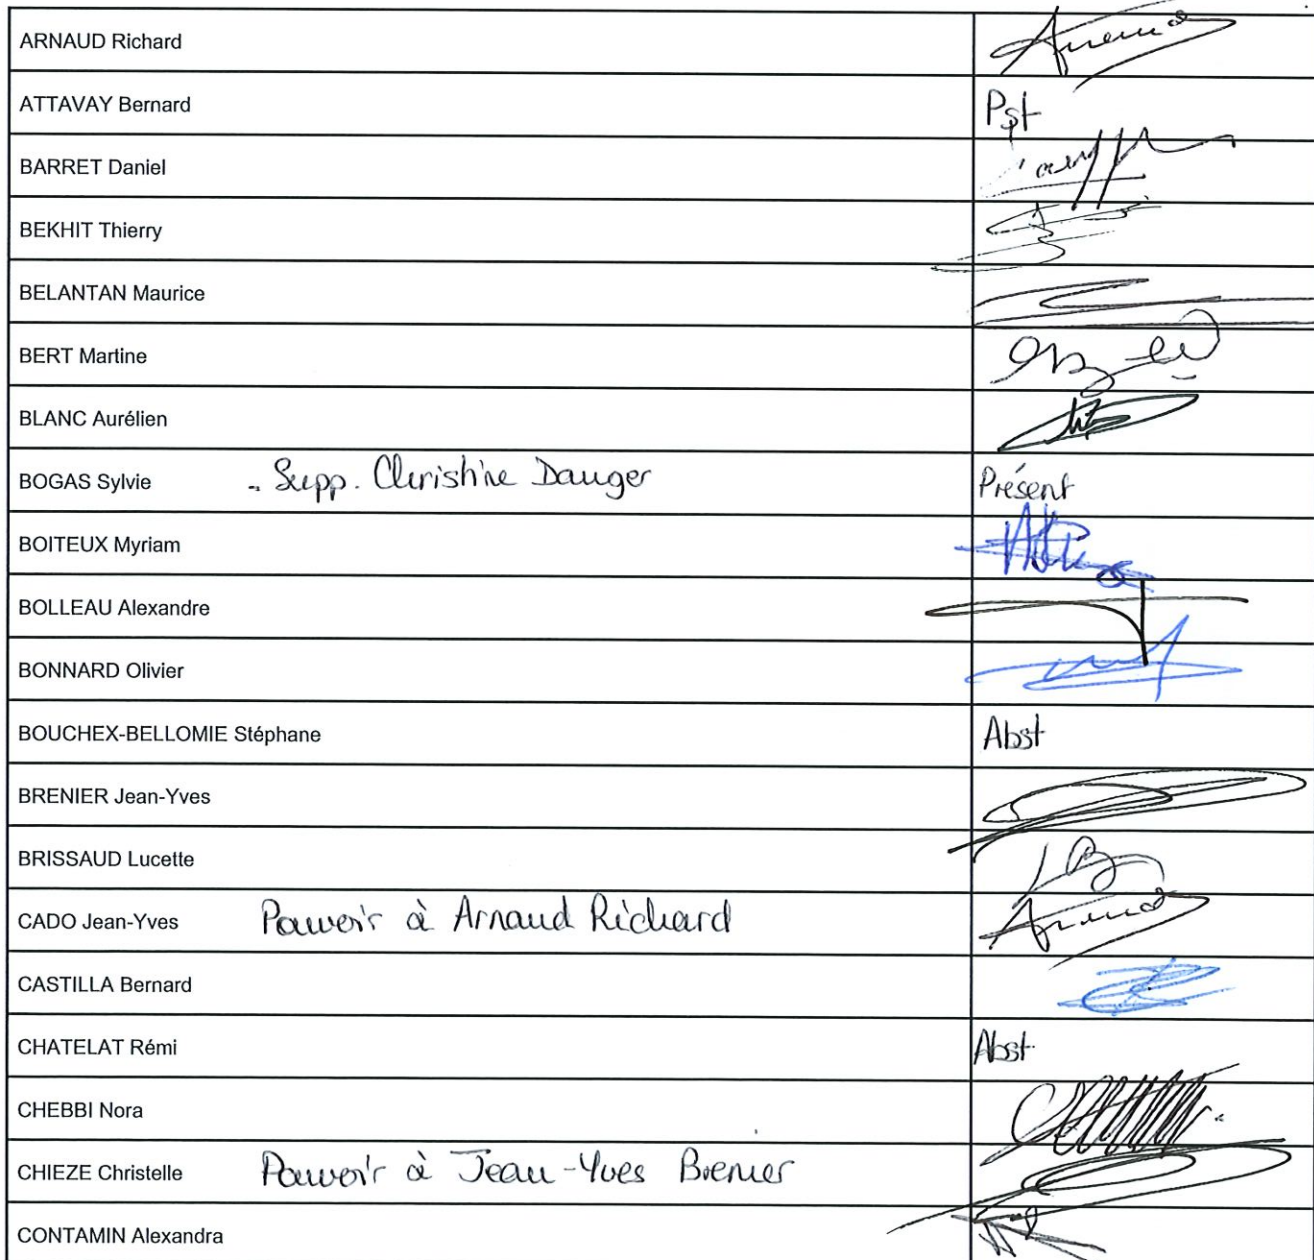 ARNAUD Richard
ATTAVAY Bernard Pst
BARRET Daniel
BEKHIT Thierry
BELANTAN Maurice
BERT Martine
BLANC Aurélien
BOGAS Sylvie - Supp. Christine Dauger Présent
BOITEUX Myriam
BOLLEAU Alexandre
BONNARD Olivier
BOUCHEX-BELLOMIE Stéphane Abst
BRENIER Jean-Yves
BRISSAUD Lucette
CADO Jean-Yves Pouvoir à Arnaud Richard
CASTILLA Bernard
CHATELAT Rémi Abst
CHEBBI Nora
CHIEZE Christelle Pouvoir à Jean-Yves Brenier
CONTAMIN Alexandra